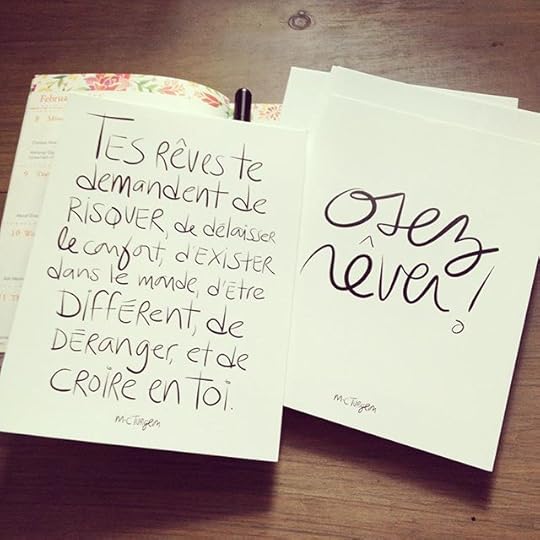 TES RÊVES te
demandent de
RISQUER, de délaisser
le confort, d'EXISTER
dans le monde, d'ÊTRE
DIFFÉRENT, de
DÉRANGER, et de
CROIRE EN TOI.
M-C Turgeon
osez
rêver!
M-C Turgeon
8
9
10